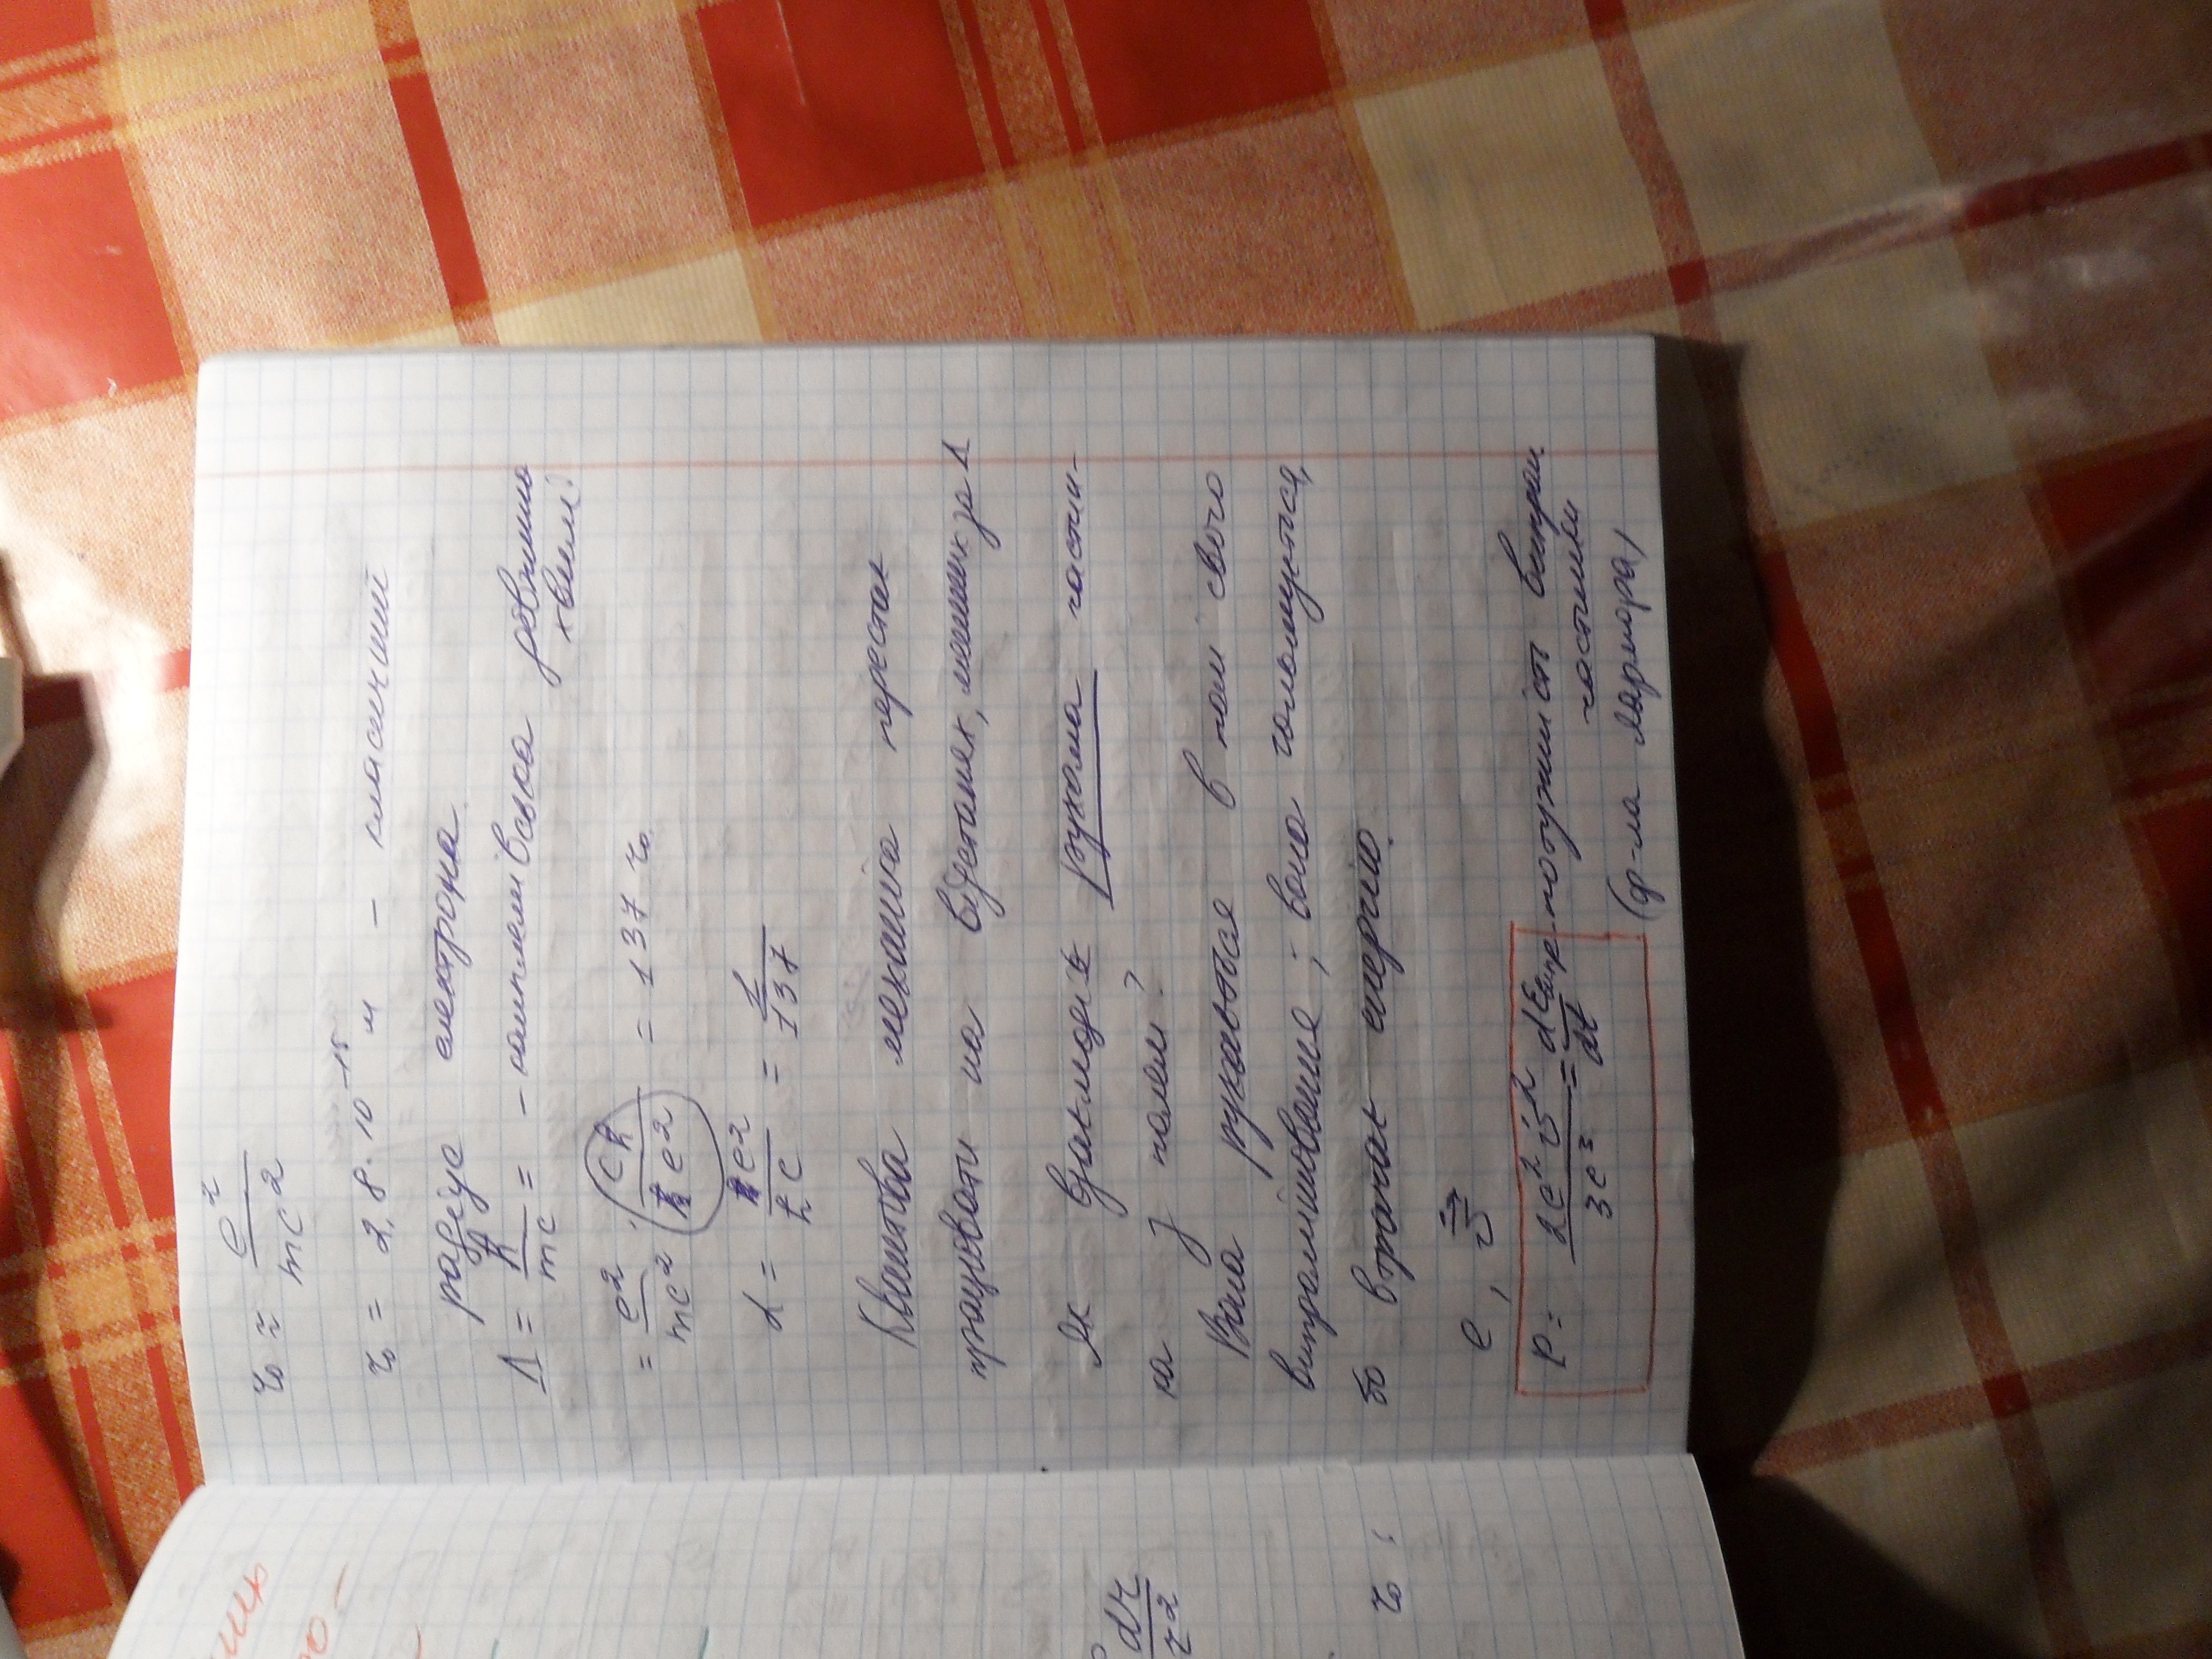 r₀ ≈ e²/mc²
r₀ = 2,8·10⁻¹⁵ м – класичний
радіус електрона.
Λ = ħ/mc = – комптонівська довжина хвилі
= e²/mc² · (cħ/e²) = 137 r₀
α = e²/ħc = 1/137
Квантова механіка перестає
працювати на відстанях, менших за Λ
Як взаємодіє рухома частин-
ка з полем?
Вона рухається в полі свого
випромінювання; вона гальмується,
бо втрачає енергію.
e, v̇⃗
P = 2e²v̇²/3c³ = dEвипр/dt – потужність випром. частинки
(ф-ла Лармора)
dr/r²
r₀,